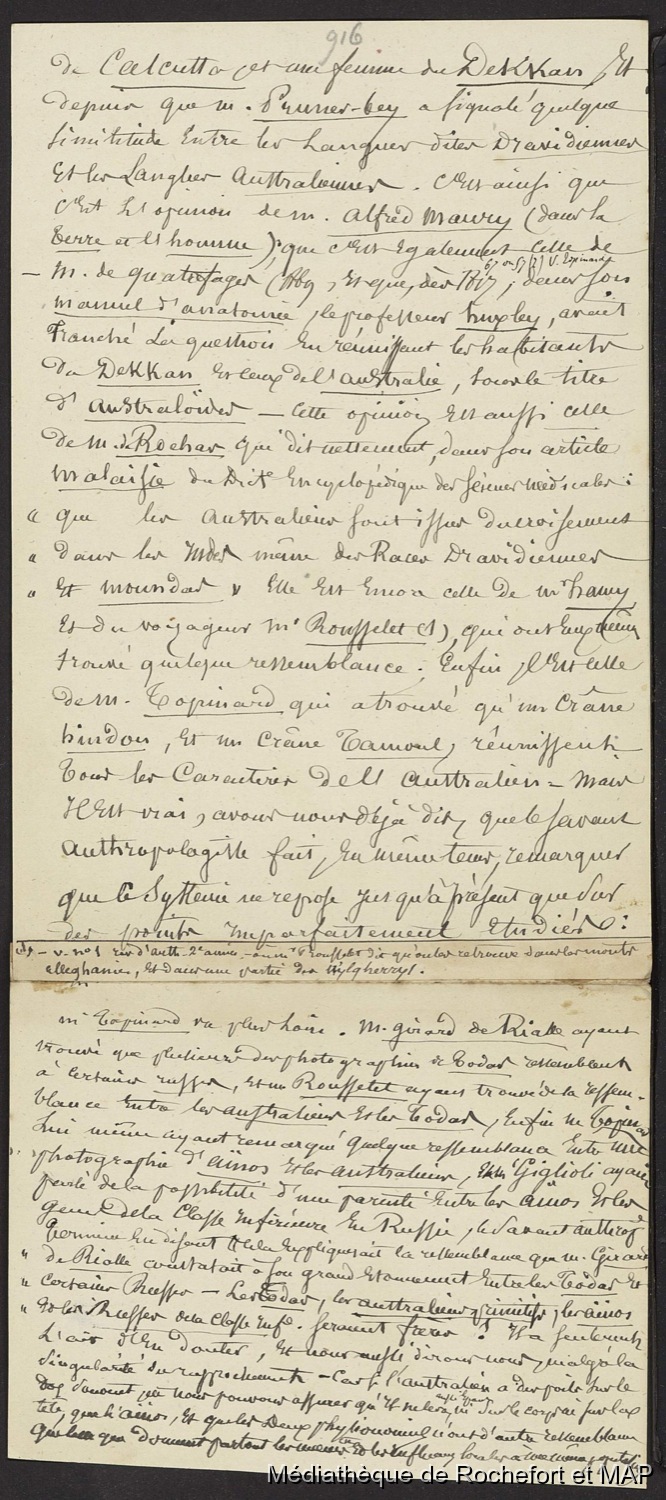 916
de Calcutta, et une femme du Dekkan, Et
depuis que m. Pruner-bey a signalé quelque
similitude entre les Langues dites Dravidiennes
Et les Langues Australiennes. C'est ainsi que
c'est l'opinion de m. Alfred Maury (dans la
terre et l'homme), que c'est également celle de
67 ou 57 (?) V. Topinard
— M. de quatrefages (1869, Et que, dès 1867, dans son
manuel d'anatomie, le professeur huxley, avait
tranché la question en réunissant les habitants
du Dekkan et ceux de l'australie, sous le titre
d'Australoïdes — Cette opinion Est aussi celle
de m. de Rochas qui dit nettement, dans son article
malaisie du Dictre Encyclopédique des sciences médicales :
" que les Australiens sont issus du croisement
" dans les Indes même des Races Dravidiennes
" Et moundas » Elle Est Encore celle de mr hamy
Et du voyageur mr Rousselet (1), qui ont Eux même
trouvé quelque ressemblance. Enfin, c'est celle
de m. Topinard qui a trouvé qu'un crâne
hindou, Et un crâne Tamoul, réunissent
tous les Caractères de l'Australien — Mais
Il Est vrai, avons nous déjà dit, que le savant
anthropologiste fait, En même tems, remarquer
que le Système ne repose jusqu'à présent que sur
des points imparfaitement étudiés :
— v. no 1 rev. d'anth. 2e année — mr Rousselet dit qu'on les retrouve dans les monts
alleghanies, Et dans une partie des Nylgherrys.
mr Topinard va plus loin. M. girard de Rialle ayant
trouvé que plusieurs des photographies de Todas ressemblent
à certains russes, Et m Rousselet ayant trouvé de la ressem-
blance Entre les australiens Et les Todas, Enfin m Topinard
lui même ayant remarqué quelque ressemblance Entre une
photographie d'aïnos Et les australiens, Et mr Giglioli ayant
parlé de la possibilité d'une parenté Entre les aïnos Et les
gens de la Classe inférieure En Russie, le savant anthrop.
termine En disant " Cela Expliquerait la ressemblance que m. Girard
" de Rialle constatait à son grand Etonnement Entre les Todas Et
" certains Russes — Les Todas, les australiens primitifs, les aïnos
" Et les Russes de la Classe Infre. seraient frères ! Il a seulement
L'air d'En douter, Et nous aussi dirons nous, malgré la
singularité du rapprochement — Car si l'australien a des poils sur le
dos nous pouvons assurer qu'il sur le corps ni sur la
tête, que l'aïnos, Et que les Deux physionomies n'ont d'autre ressemblance
que celle que donnent partout les mêmes
Médiathèque de Rochefort et MAP